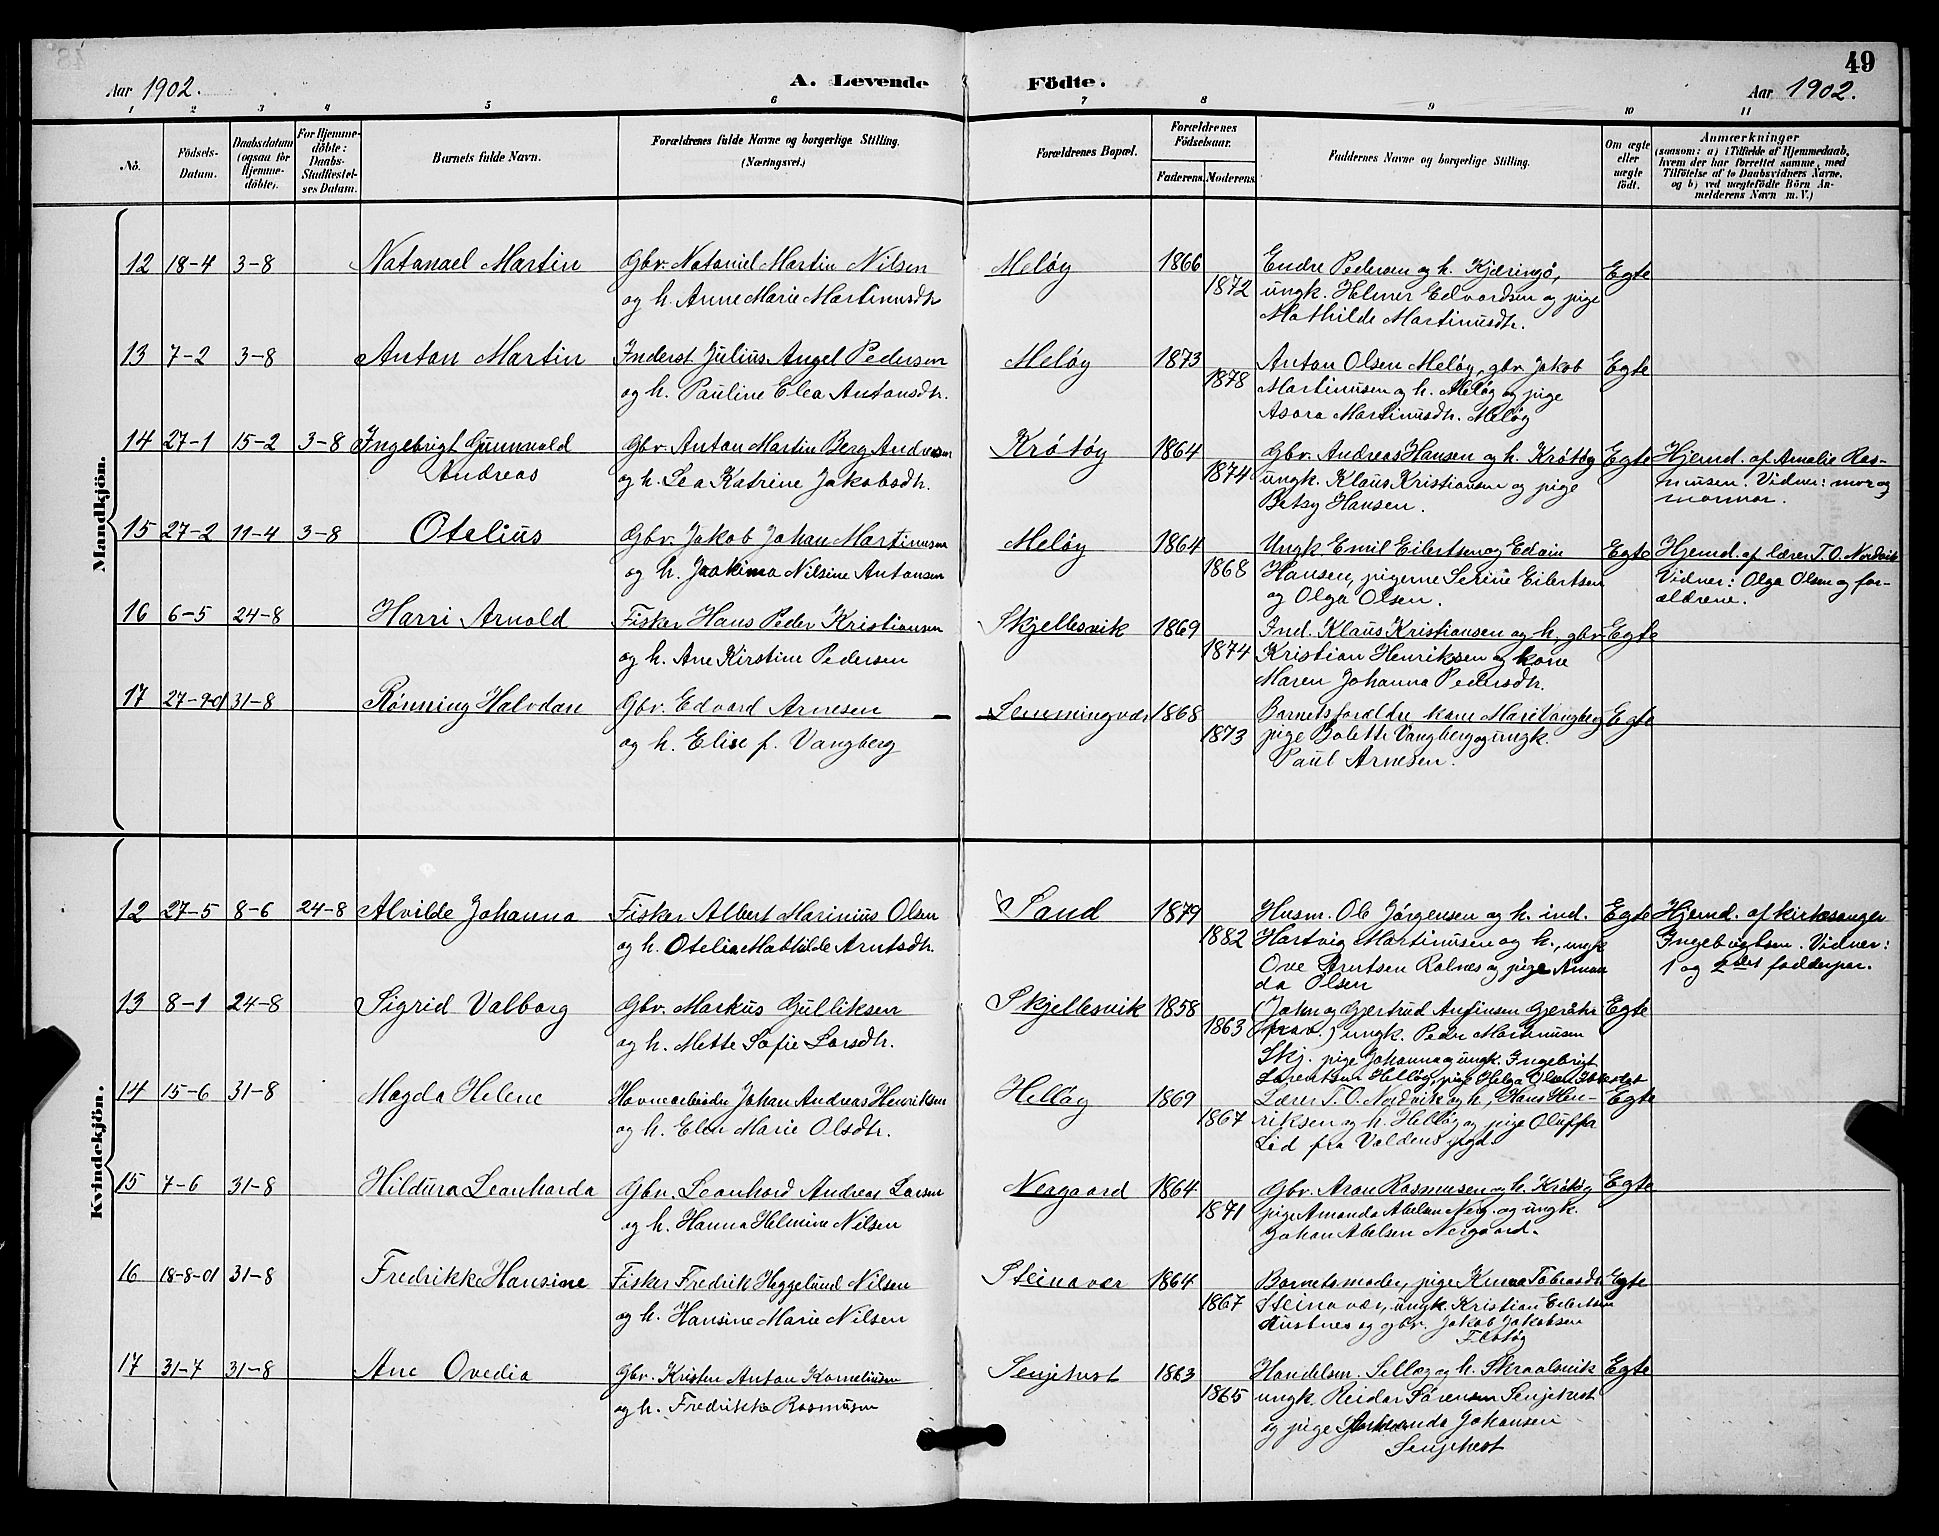 49
Aar 1902. A. Levende Födte. Aar 1902.
1 2 3 4 5 6 7 8 9 10 11
No. Födsels-Datum. Daabsdatum (ogsaa för Hjemme-döbte). For Hjemme-döbte: Daabs-Stadfæstel-ses Datum. Barnets fulde Navn. Forældrenes fulde Navne og borgerlige Stilling. (Næringsvei.) Forældrenes Bopæl. Forældrenes Födselsaar. Faderens. Moderens. Faddernes Navne og borgerlige Stilling. Om ægte eller uægte födt. Anmærkninger (saasom: a) i Tilfælde af Hjemmedaab, hvem der har forrettet samme, med Tilföielse af to Daabsvidners Navne, og b) ved uægtefödte Börn An-melderens Navn m. V.)
Mandkjön.
12 18-4 3-8 Natanael Martin Gbr. Nataniel Martin Nilsen Meløy 1866 Endre Pedersen og h. Kjæringø, Egte
og h. Anne Marie Martinusdtr 1872 ungk. Helmer Edvardsen og pige
Mathilde Martinusdtr.
13 7-2 3-8 Anton Martin Inderst Julius Angel Pedersen Meløy 1873 Anton Olsen Meløy, gbr. Jakob Egte
og h. Pauline Elea Antonsdtr. 1878 Martinusen og h. Meløy og pige
Asora Martinusdtr. Meløy
14 27-1 15-2 3-8 Ingebrigt Gunnvald Gbr. Anton Martin Berg Andreasen Krøtøy 1864 Gbr. Andreas Hansen og h. Krøtøy Egte Hjemd. af Amalie Ras-
Andreas og h. Lea Katrine Jakobsdtr. 1874 ungk. Klaus Kristiansen og pige musen. Vidner: mor og
Betsy Hansen. mormor.
15 27-2 11-4 3-8 Otelius Gbr. Jakob Johan Martinusen Meløy 1864 Ungk. Emil Eilertsen og Edvin Egte Hjemd. af lærer T. O. Nordvik
og h. Joakima Nilsine Antonsen 1868 Hansen, pigerne Serine Eilertsen Vidner: Olga Olsen og for-
og Olga Olsen. ældrene.
16 6-5 24-8 Harri Arnold Fisker Hans Peder Kristiansen Skjellesvik 1869 Ind. Klaus Kristiansen og h., gbr. Egte
og h. Ane Kirstine Pedersen 1874 Kristian Henriksen og kone
Maren Johanna Pedersdtr.
17 27-9-01 31-8 Rønning Halvdan Gbr. Edvard Arnesen Lemmingvær 1868 Barnets forældre kone Marie Vangberg Egte
og h. Elise f. Vangberg 1873 pige Bolette Vangberg og ungk.
Paul Arnesen.
Kvindekjön.
12 27-5 8-6 24-8 Alvilde Johanna Fisker Albert Marinius Olsen Sand 1879 Husm. Ole Jørgensen og h. ind. Egte Hjemd. af kirkesanger
og h. Otelia Mathilde Arntsdtr. 1882 Hartvig Martinusen og h., ungk Ingebrigtsen. Vidner:
Ove Arntsen Rolnes og pige Aman 1 og 2det fadderpar.
da Olsen
13 8-1 24-8 Sigrid Valborg Gbr. Markus Gulliksen Skjellesvik 1858 (John og Gjertrud Anfinsen Egte
og h. Mette Sofie Larsdtr. 1863 ungk. Peder Martinusen
Skj. pige Johanna og ungk. Ingebrigt
Lorentsen Helløy, pige Helga Olsen
14 15-6 31-8 Magda Helene Havnearbeider Johan Andreas Henriksen Helløy 1869 Lærer T. O. Nordvik og h., Hans Hen- Egte
og h. Elen Marie Olsdtr. 1867 riksen og h. Helløy og pige Oluffa
Lid fra Voldens pgd.
15 7-6 31-8 Hildura Leonharda Gbr. Leonhard Andreas Larsen Nergaard 1864 Gbr. Aron Rasmusen og h. Krøtøy Egte
og h. Hanna Helmine Nilsen 1871 pige Amanda Abelsen Nerg. og ungk.
Johan Abelsen Nergaard.
16 18-8-01 31-8 Fredrikke Hansine Fisker Fredrik Heggelund Nilsen Steinavær 1864 Barnets moder, pige Tobiasdtr Egte
og h. Hansine Marie Nilsen 1867 Steinavær, ungk. Kristian Eilertsen
og gbr. Jakob Jakobsen
Flatøy
17 31-7 31-8 Ane Ovedia Gbr. Kristen Anton Korneliusen Senjehest 1863 Handelsm. Selløg og h. Skraalsvik Egte
og h. Fredrikke Rasmusen 1865 ungk. Reidar Sørensen Senjehest
og pige Johansen
Senjehest